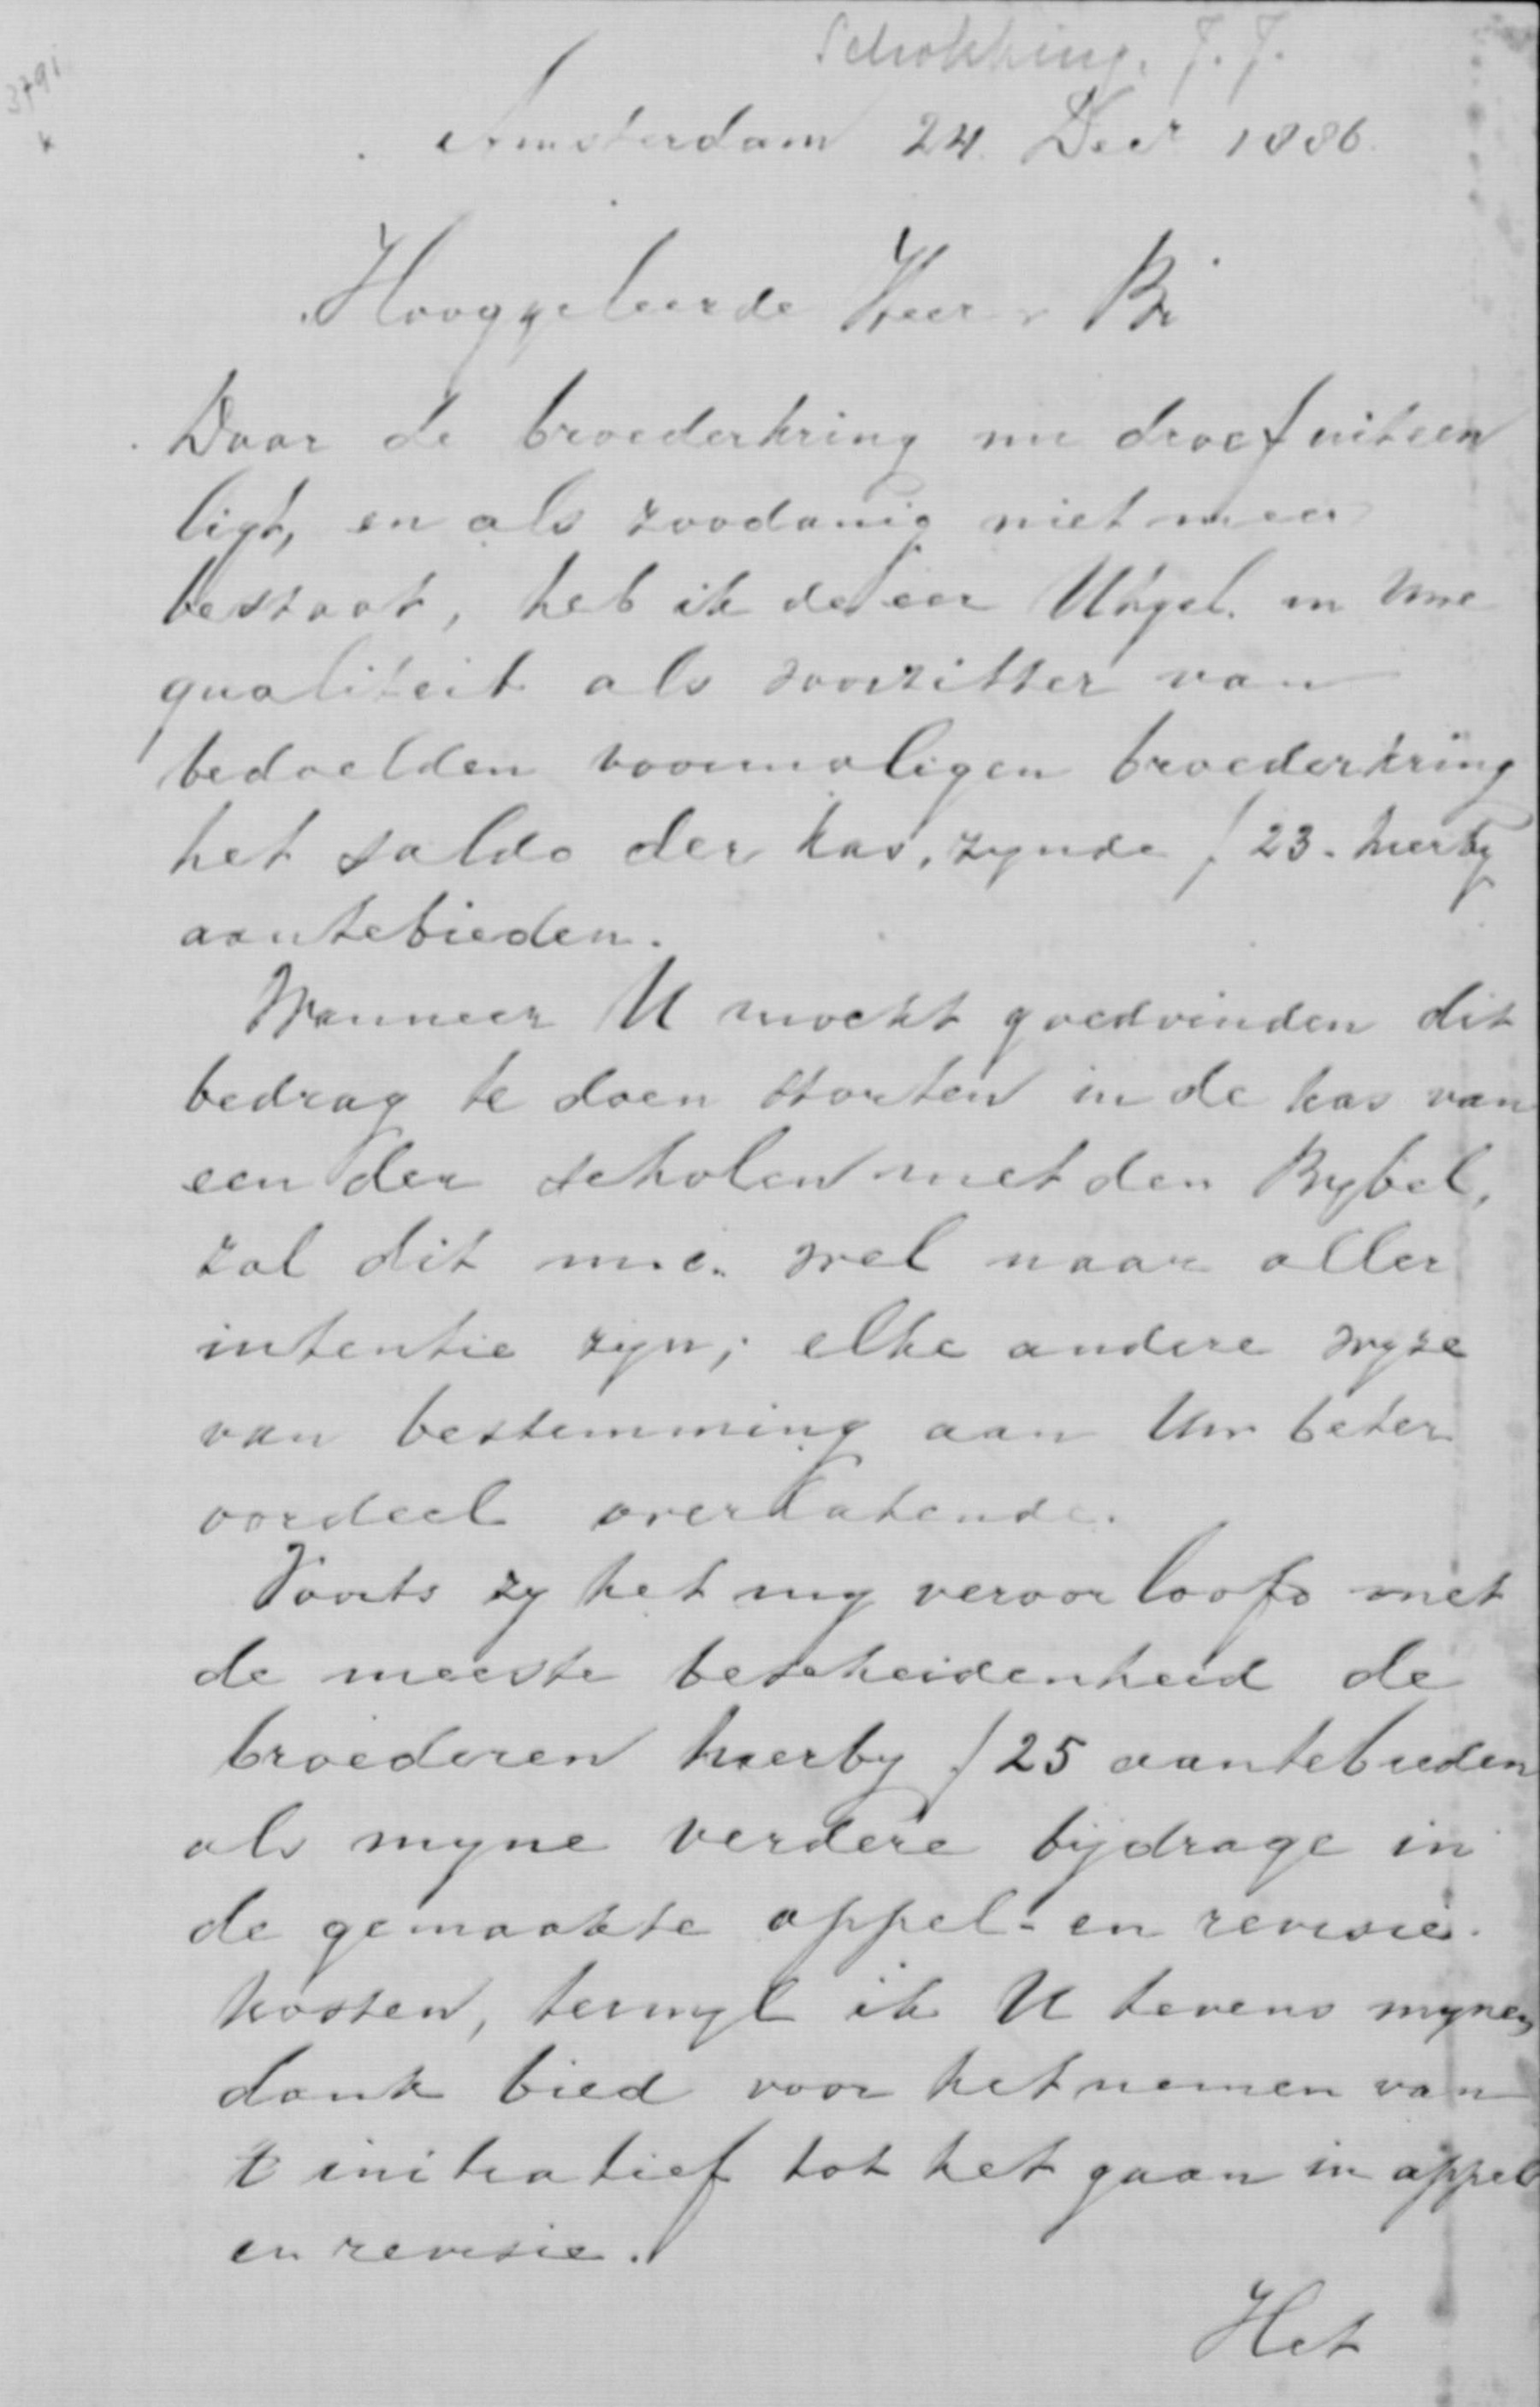 Schokking, J. J.
3791
Amsterdam 24 Decr 1886.
Hooggeleerde Heer & Br
Daar de broederkring nu droef uiteen
ligt, en als zoodanig niet meer
bestaat, heb ik de eer UHgel. in Uwe
qualiteit als voorzitter van
bedoelden voormaligen broederkring
het saldo der kas, zynde f 23.- hierby
aantebieden.
Wanneer U mocht goedvinden dit
bedrag te doen storten in de kas van
een der scholen met den Bybel,
zal dit m.i. wel naar aller
intentie zyn; elke andere wyze
van bestemming aan Uw beter
oordeel overlatende.
Voorts zy het my veroorloofd met
de meeste bescheidenheid de
broederen hierby f 25 aantebieden
als myne verdere bijdrage in
de gemaakte appel- en revisie-
kosten, terwyl ik U tevens mynen
dank bied voor het nemen van
't initiatief tot het gaan in appel
en revisie.
Het